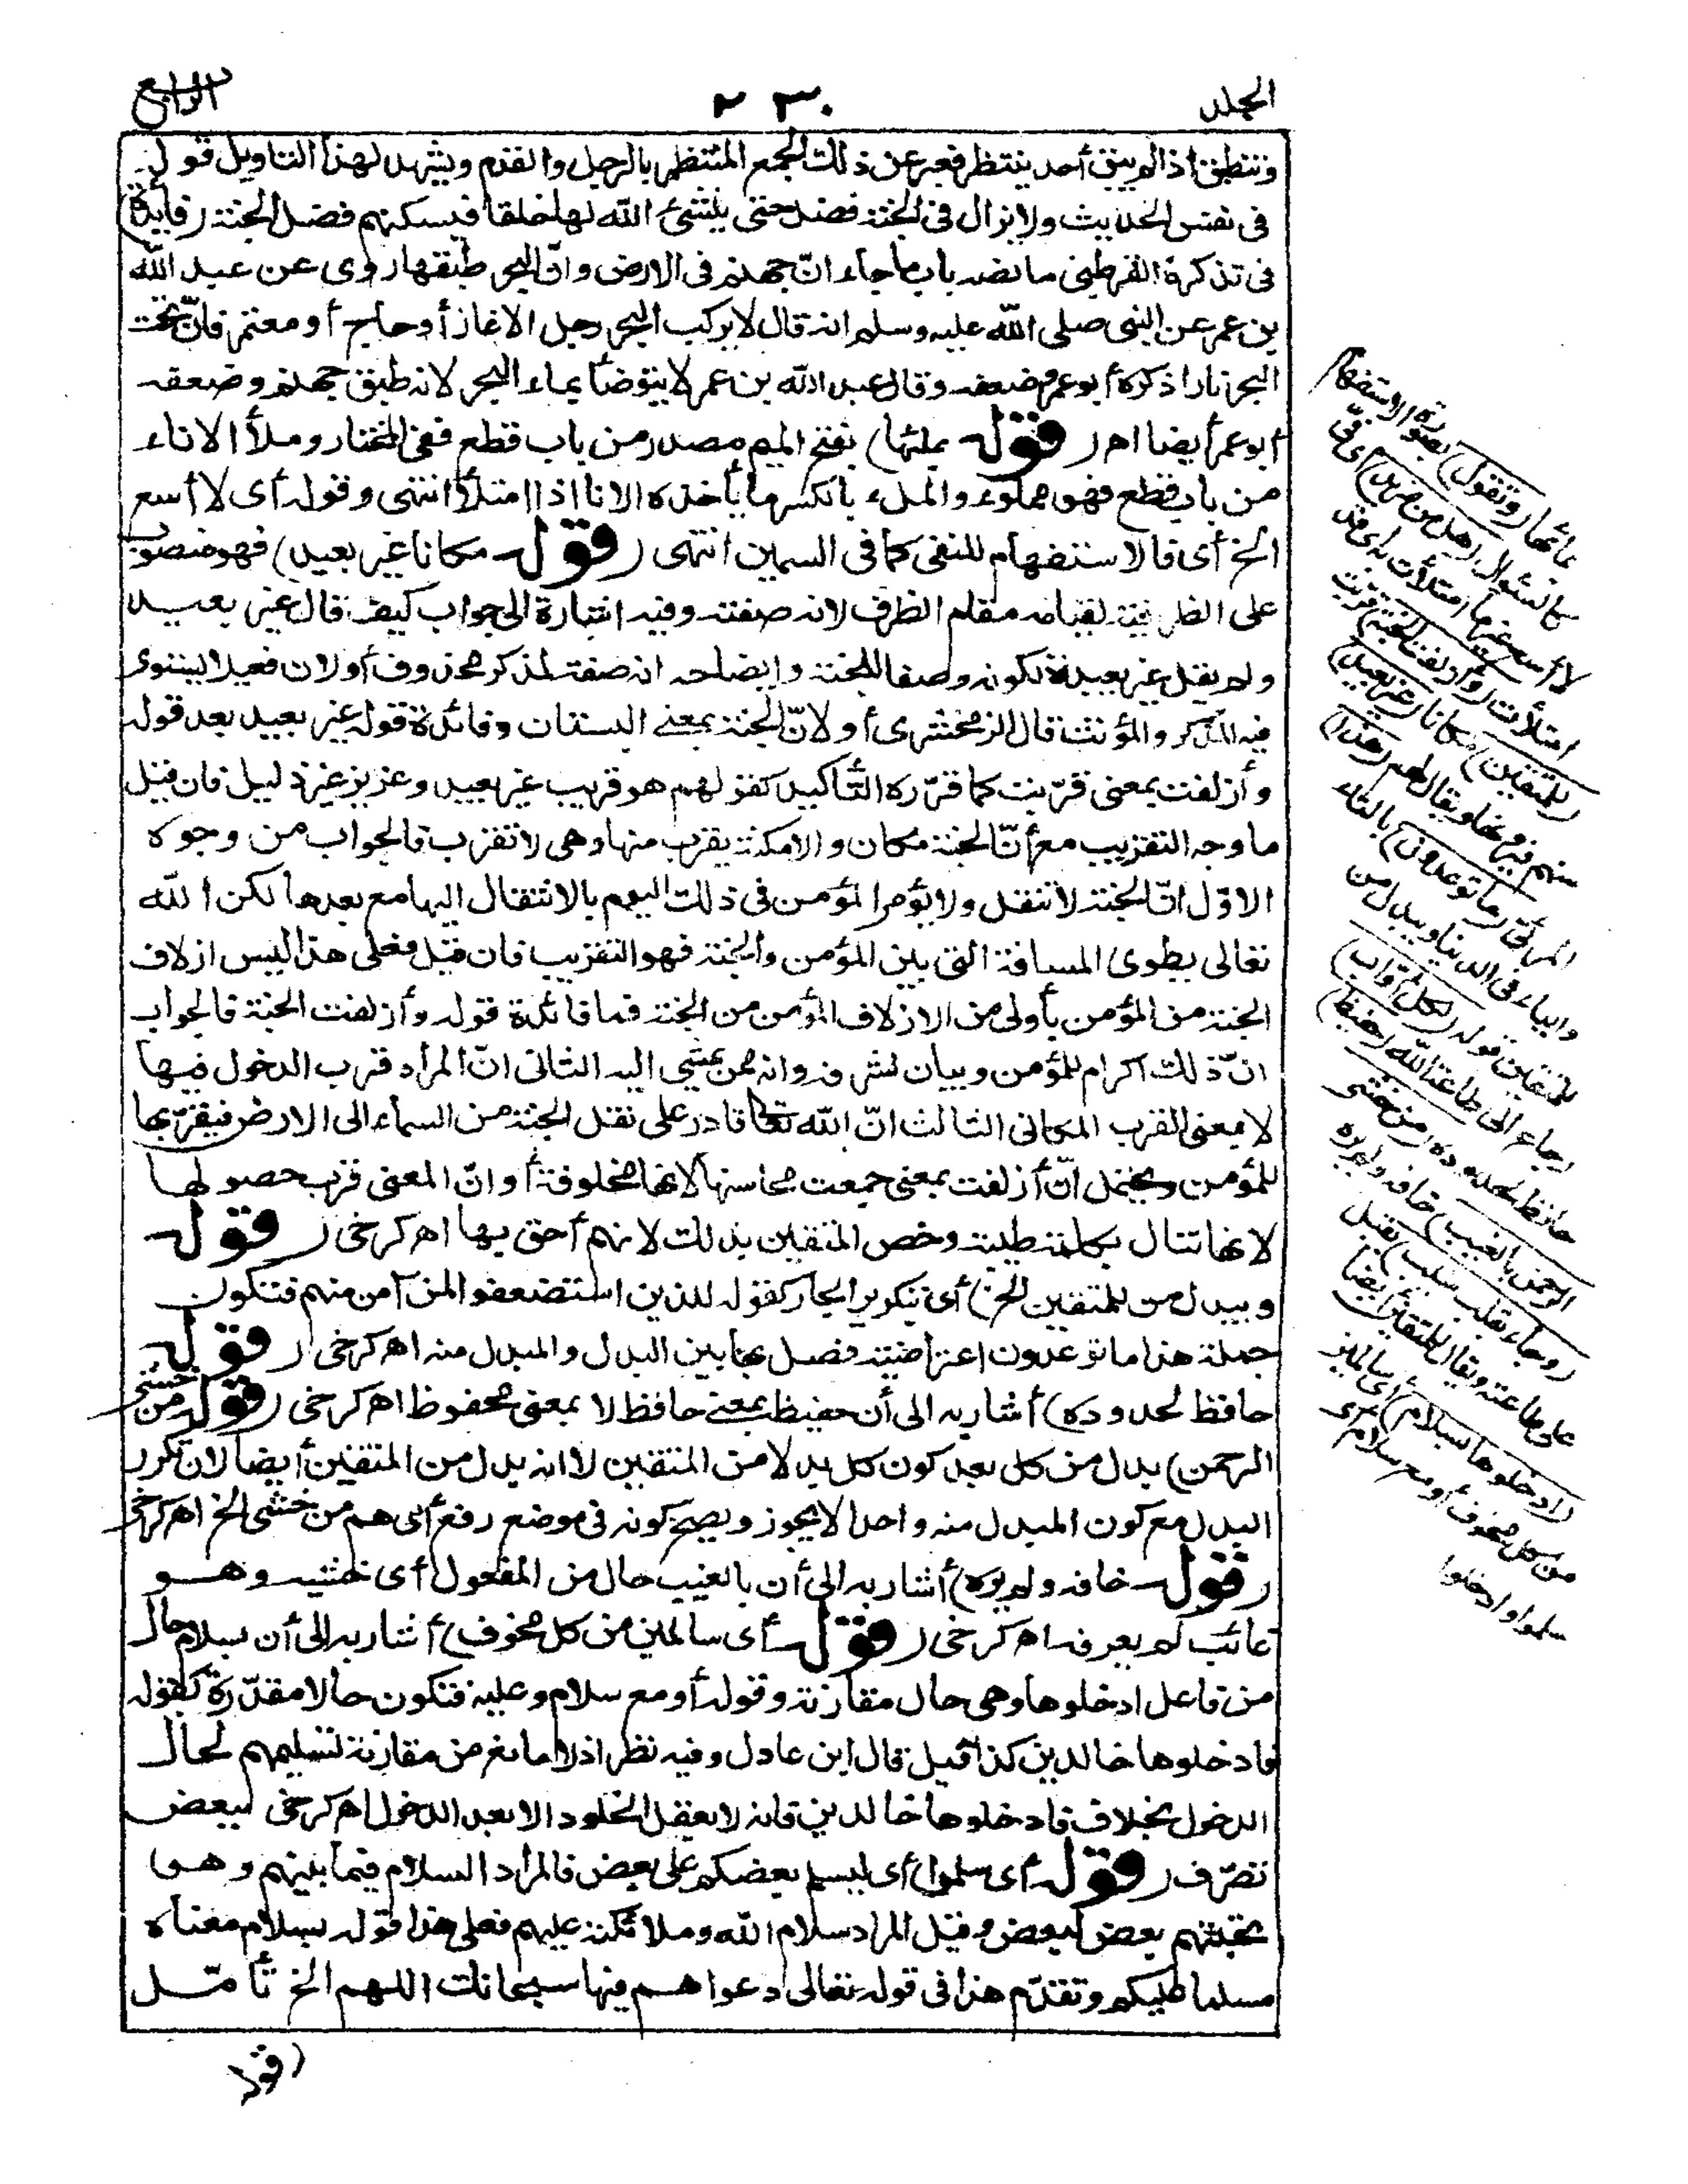 الجلد
٢٣٠
الرابع
وتنطبق اذا لم يبق أحد ينتظر فعبر عن ذلك الجمع المنتظر بالرجل والقدم ويشهد لهذا التاويل قوله
فى نفس الحديث ولا يزال فى الجنة فضل حتى ينشئ الله لها خلقا فيسكنهم فضل الجنة (فايدة)
فى تذكرة القرطبى ما نصه باب ما جاء انّ جهنم فى الارض وانّ البحر طبقها روى عن عبد الله
بن عمر عن النبى صلى الله عليه وسلم انه قال لا يركب البحر رجل الا غاز أو حاج أو معتمر فانّ تحت
البحر نارا ذكره أبو عمر وضعفه وقال عبد الله بن عمر لا يتوضأ بماء البحر لانه طبق جهنم وضعفه
أبو عمر أيضا اهـ (قوله بملئها) بفتح الميم مصدر من باب قطع ففى المختار وملأ الاناء
من باب قطع فهو مملوء والملء بالكسر ما يأخذه الانا اذا امتلأ انتهى وقوله أى لا أسع
الخ أى فالاستفهام للنفى كما فى السمين انتهى (قوله مكانا غير بعيد) فهو منصوب
على الظرفية لقيامه مقام الظرف لانه صفته وفيه اشارة الى جواب كيف قال غير بعيد
ولم يقل غير بعيدة لكونه وصفا للجنة وايضاحه انه صفة لمذكر محذوف أو لان فعيلا يستوى
فيه المذكر والمؤنث قال الزمخشرى أو لانّ الجنة بمعنى البستان وفائدة قوله غير بعيد بعد قوله
وأزلفت بمعنى قرّبت كما قرّره التأكيد كقولهم هو قريب غير بعيد وعزيز غير ذليل فان قيل
ما وجه التقريب مع أنّ الجنة مكان والامكنة يقرب منها وهى لا تقرب فالجواب من وجوه
الاوّل انّ الجنة لا تنقل ولا يؤمر المؤمن فى ذلك اليوم بالانتقال اليها مع بعدها لكن الله
تعالى يطوى المسافة التى بين المؤمن والجنة فهو التقريب فان قيل فعلى هذا ليس ازلاف
الجنة من المؤمن بأولى من الازلاف المؤمن من الجنة فما فائدة قوله وأزلفت الجنة فالجواب
انّ ذلك اكرام للمؤمن وبيان لشرفه وانه ممن يمشى اليه الثانى انّ المراد قرب الدخول فيها
لا بمعنى القرب المكانى الثالث انّ الله تعالى قادر على نقل الجنة من السماء الى الارض فيقرّبها
للمؤمن ويحتمل انّ أزلفت بمعنى جمعت محاسنها لانها مخلوقة أو انّ المعنى قرب حصولها
لانها تنال بكلمة طيبة وخص المتقين بذلك لانهم أحق بها اهـ كرخى (قوله
ويبدل من للمتقين الخ) أى بتكرير الجار كقوله للذين استضعفوا لمن آمن منهم فتكون
جملة هذا ما توعدون اعتراضية فصل بها بين البدل والمبدل منه اهـ كرخى (قوله
حافظ لحدوده) أشار به الى أن حفيظ بمعنى حافظ لا بمعنى محفوظ اهـ كرخى (قوله من خشى
الرحمن) بدل من كل بعد كون كل بدلا من المتقين لا انه بدل من المتقين أيضا لان تكرر
البدل مع كون المبدل منه واحدا لا يجوز ويصح كونه فى موضع رفع أى هم من خشى الخ اهـ كرخى
(قوله خافه ولم يره) أشار به الى أن بالغيب حال من المفعول أى خشيه وهو
غائب لم يعرفه اهـ كرخى (قوله أى سالمين من كل مخوف) أشار به الى أن بسلام حال
من فاعل ادخلوها وهى حال مقارنة وقوله أو مع سلام وعليه فتكون حالا مقدّرة كقوله
فادخلوها خالدين كذا قيل قال ابن عادل وفيه نظر اذ لا مانع من مقارنة تسليمهم لحال
الدخول بخلاف فادخلوها خالدين فانه لا يعقل الخلود الا بعد الدخول اهـ كرخى ببعض
تصرّف (قوله أى سلموا) أى ليسلم بعضكم على بعض فالمراد السلام فيما بينهم وهو
تحيتهم بعض لبعض وقيل المراد سلام الله وملائكته عليهم فعلى هذا قوله بسلام معناه
مسلما عليكم وتقدّم هذا فى قوله تعالى دعواهم فيها سبحانك اللهم الخ تأمّل
(قوله
بملئها (وتقول) بصورة الاستفهام
كالسؤال (هل من مزيد) أى فىّ
لا أسع غير ما امتلأت به أى قد
امتلأت (وأزلفت الجنة) قربت
(للمتقين) مكانا (غير بعيد)
منهم فيرونها ويقال لهم (هذا)
المرئى (ما توعدون) بالتاء
والياء فى الدنيا ويبدل من
للمتقين قوله (لكل أوّاب)
رجاع الى طاعة الله (حفيظ)
حافظ لحدوده (من خشى
الرحمن بالغيب) خافه ولم يره
(وجاء بقلب منيب) مقبل
على طاعته ويقال للمتقين أيضا
(ادخلوها بسلام) أى سالمين
من كل مخوف أو مع سلام أى
سلموا وادخلوا